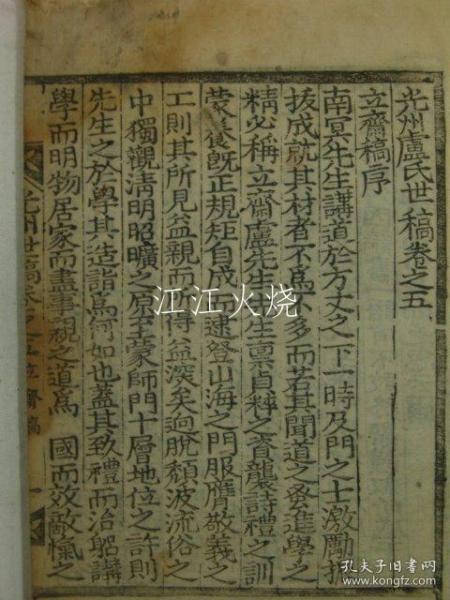 光州盧氏世稿卷之五
立齋稿序
南冥先生講道於方丈之下一時及門之士激勵振
拔成就其材者不爲不多而若其聞道之蚤進學之
精必稱立齋盧先生先生稟貞粹之資襲詩禮之訓
蒙養旣正規矩自成而速登山海之門服膺敬義之
工則其所見益親而所得益深矣迥脫頹波流俗之
中獨觀淸明昭曠之原至蒙師門十層地位之許則
先生之於學其造詣爲何如也蓋其致禮而治躬講
學而明物居家而盡事親之道爲 國而效敵愾之
光州世稿 卷之五 立齋稿 一
江江火烧
孔夫子旧书网
www.kongfz.com